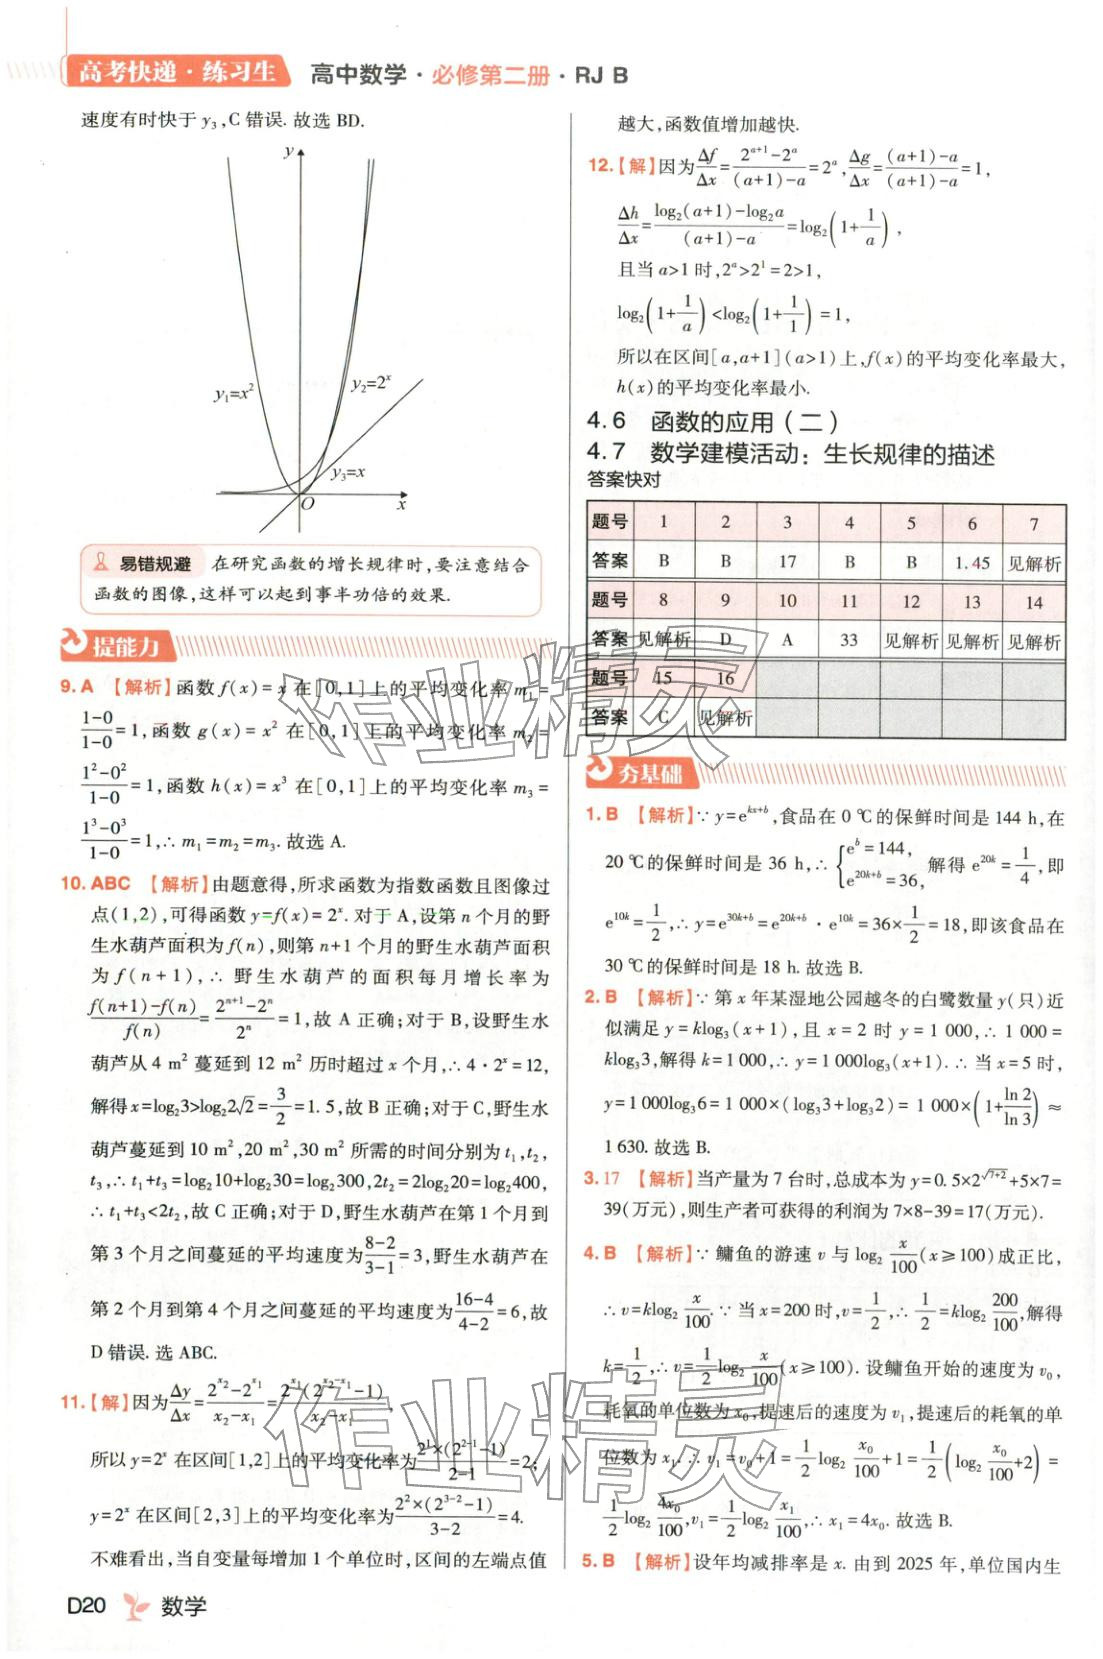 高考快递·练习生 高中数学·必修第二册·RJ B
速度有时快于 y₃,C 错误. 故选 BD.
y
y₁=x²
y₂=2ˣ
y₃=x
O
x
易错规避 在研究函数的增长规律时,要注意结合
函数的图像,这样可以起到事半功倍的效果.
提能力
9. A 【解析】函数 f(x)=x 在[0,1]上的平均变化率 m₁=
(1-0)/(1-0)=1,函数 g(x)=x² 在[0,1]上的平均变化率 m₂=
(1²-0²)/(1-0)=1,函数 h(x)=x³ 在[0,1]上的平均变化率 m₃=
(1³-0³)/(1-0)=1,∴ m₁=m₂=m₃. 故选 A.
10. ABC 【解析】由题意得,所求函数为指数函数且图像过
点(1,2),可得函数 y=f(x)=2ˣ. 对于 A,设第 n 个月的野
生水葫芦面积为 f(n),则第 n+1 个月的野生水葫芦面积
为 f(n+1),∴ 野生水葫芦的面积每月增长率为
(f(n+1)-f(n))/f(n)=(2ⁿ⁺¹-2ⁿ)/2ⁿ=1,故 A 正确;对于 B,设野生水
葫芦从 4 m² 蔓延到 12 m² 历时超过 x 个月,∴ 4·2ˣ=12,
解得 x=log₂3>log₂2√2=3/2=1.5,故 B 正确;对于 C,野生水
葫芦蔓延到 10 m²,20 m²,30 m² 所需的时间分别为 t₁,t₂,
t₃,∴ t₁+t₃=log₂10+log₂30=log₂300,2t₂=2log₂20=log₂400,
∴ t₁+t₃<2t₂,故 C 正确;对于 D,野生水葫芦在第 1 个月到
第 3 个月之间蔓延的平均速度为(8-2)/(3-1)=3,野生水葫芦在
第 2 个月到第 4 个月之间蔓延的平均速度为(16-4)/(4-2)=6,故
D 错误. 选 ABC.
11.【解】因为Δy/Δx=(2^(x₂)-2^(x₁))/(x₂-x₁)=2^(x₁)(2^(x₂-x₁)-1)/(x₂-x₁),
所以 y=2ˣ 在区间[1,2]上的平均变化率为2¹×(2²⁻¹-1)/(2-1)=2;
y=2ˣ 在区间[2,3]上的平均变化率为2²×(2³⁻²-1)/(3-2)=4.
不难看出,当自变量每增加 1 个单位时,区间的左端点值
越大,函数值增加越快.
12.【解】因为Δf/Δx=(2^(a+1)-2^a)/((a+1)-a)=2^a,Δg/Δx=((a+1)-a)/((a+1)-a)=1,
Δh/Δx=(log₂(a+1)-log₂a)/((a+1)-a)=log₂(1+1/a),
且当 a>1 时,2^a>2¹=2>1,
log₂(1+1/a)<log₂(1+1/1)=1,
所以在区间[a,a+1](a>1)上,f(x)的平均变化率最大,
h(x)的平均变化率最小.
4.6 函数的应用(二)
4.7 数学建模活动:生长规律的描述
答案快对
题号 1 2 3 4 5 6 7
答案 B B 17 B B 1.45 见解析
题号 8 9 10 11 12 13 14
答案 见解析 D A 33 见解析 见解析 见解析
题号 15 16
答案 C 见解析
夯基础
1. B 【解析】∵ y=e^(kx+b),食品在 0 ℃的保鲜时间是 144 h,在
20 ℃的保鲜时间是 36 h,∴ {e^b=144, e^(20k+b)=36, 解得 e^(20k)=1/4,即
e^(10k)=1/2,∴ y=e^(30k+b)=e^(20k+b)·e^(10k)=36×1/2=18,即该食品在
30 ℃的保鲜时间是 18 h. 故选 B.
2. B 【解析】∵ 第 x 年某湿地公园越冬的白鹭数量 y(只)近
似满足 y=klog₃(x+1),且 x=2 时 y=1 000,∴ 1 000=
klog₃3,解得 k=1 000,∴ y=1 000log₃(x+1). ∴ 当 x=5 时,
y=1 000log₃6=1 000×(log₃3+log₃2)=1 000×(1+ln 2/ln 3)≈
1 630. 故选 B.
3. 17 【解析】当产量为 7 台时,总成本为 y=0.5×2^√(7+2)+5×7=
39(万元),则生产者可获得的利润为 7×8-39=17(万元).
4. B 【解析】∵ 鳙鱼的游速 v 与 log₂ x/100(x≥100)成正比,
∴ v=klog₂ x/100. ∵ 当 x=200 时,v=1/2,∴ 1/2=klog₂ 200/100,解得
k=1/2,∴ v=1/2log₂ x/100(x≥100). 设鳙鱼开始的速度为 v₀,
耗氧的单位数为 x₀,提速后的速度为 v₁,提速后的耗氧的单
位数为 x₁. ∴ v₁=v₀+1=1/2log₂ x₀/100+1=1/2(log₂ x₀/100+2)=
1/2log₂ 4x₀/100,v₁=1/2log₂ x₁/100,∴ x₁=4x₀. 故选 B.
5. B 【解析】设年均减排率是 x. 由到 2025 年,单位国内生
D20 数学
作业精灵
作业精灵